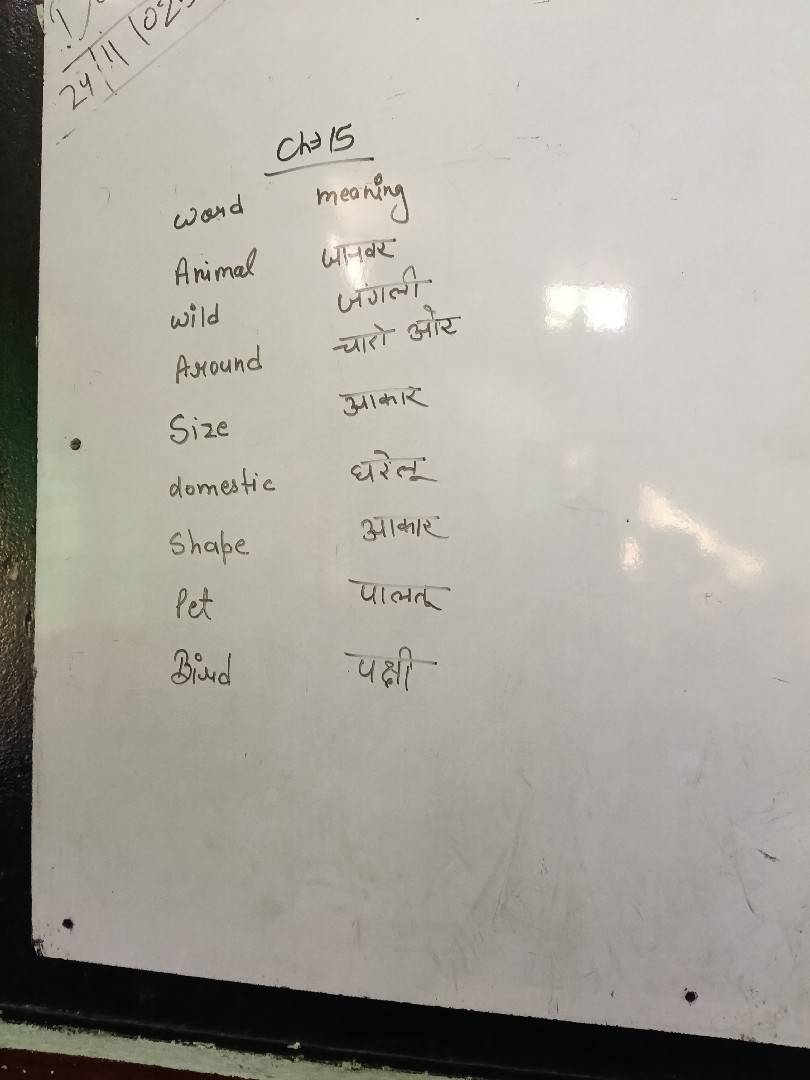 24/11/025
Ch⇒15
word meaning
Animal जानवर
wild जंगली
Around चारो ओर
Size आकार
domestic घरेलू
Shape आकार
Pet पालतू
Bird पक्षी